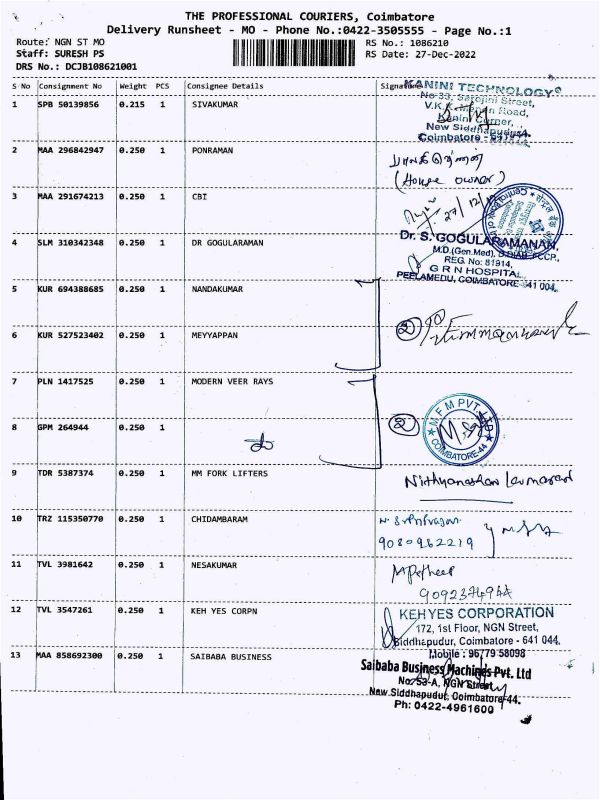 THE PROFESSIONAL COURIERS, Coimbatore
Delivery Runsheet - MO - Phone No.:0422-3505555 - Page No.:1
Route: NGN ST MO
RS No.: 1086210
Staff: SURESH PS
RS Date: 27-Dec-2022
DRS No.: DCJB108621001
S No Consignment No Weight PCS Consignee Details Signature
1 SPB 50139856 0.215 1 SIVAKUMAR
KANINI TECHNOLOGY
No 33, Sarojini Street,
Road,
Kanini Corner,
New Siddhapudur,
Coimbatore - 641044.
2 MAA 296842947 0.250 1 PONRAMAN
(House owner)
3 MAA 291674213 0.250 1 CBI
27/12/
4 SLM 310342348 0.250 1 DR GOGULARAMAN
Dr. S. GOGULARAMANAN,
M.D.(Gen.Med), D.DIAB, FCCP.,
REG. No: 81914,
G R N HOSPITAL,
PEELAMEDU, COIMBATORE-641 004.
5 KUR 694388685 0.250 1 NANDAKUMAR
6 KUR 527523402 0.250 1 MEYYAPPAN
2
7 PLN 1417525 0.250 1 MODERN VEER RAYS
8 GPM 264944 0.250 1
2
M F M PVT. LTD
COIMBATORE-44
9 TDR 5387374 0.250 1 MM FORK LIFTERS
10 TRZ 115350770 0.250 1 CHIDAMBARAM
N. Srinivasan
9080962219
11 TVL 3981642 0.250 1 NESAKUMAR
9092374944
12 TVL 3547261 0.250 1 KEH YES CORPN
KEH YES CORPORATION
172, 1st Floor, NGN Street,
Siddhapudur, Coimbatore - 641 044.
Mobile : 96779 58098
13 MAA 858692300 0.250 1 SAIBABA BUSINESS
Saibaba Business Machines Pvt. Ltd
No: 53-A, NGN Street,
New Siddhapudur, Coimbatore-44.
Ph: 0422-4961600